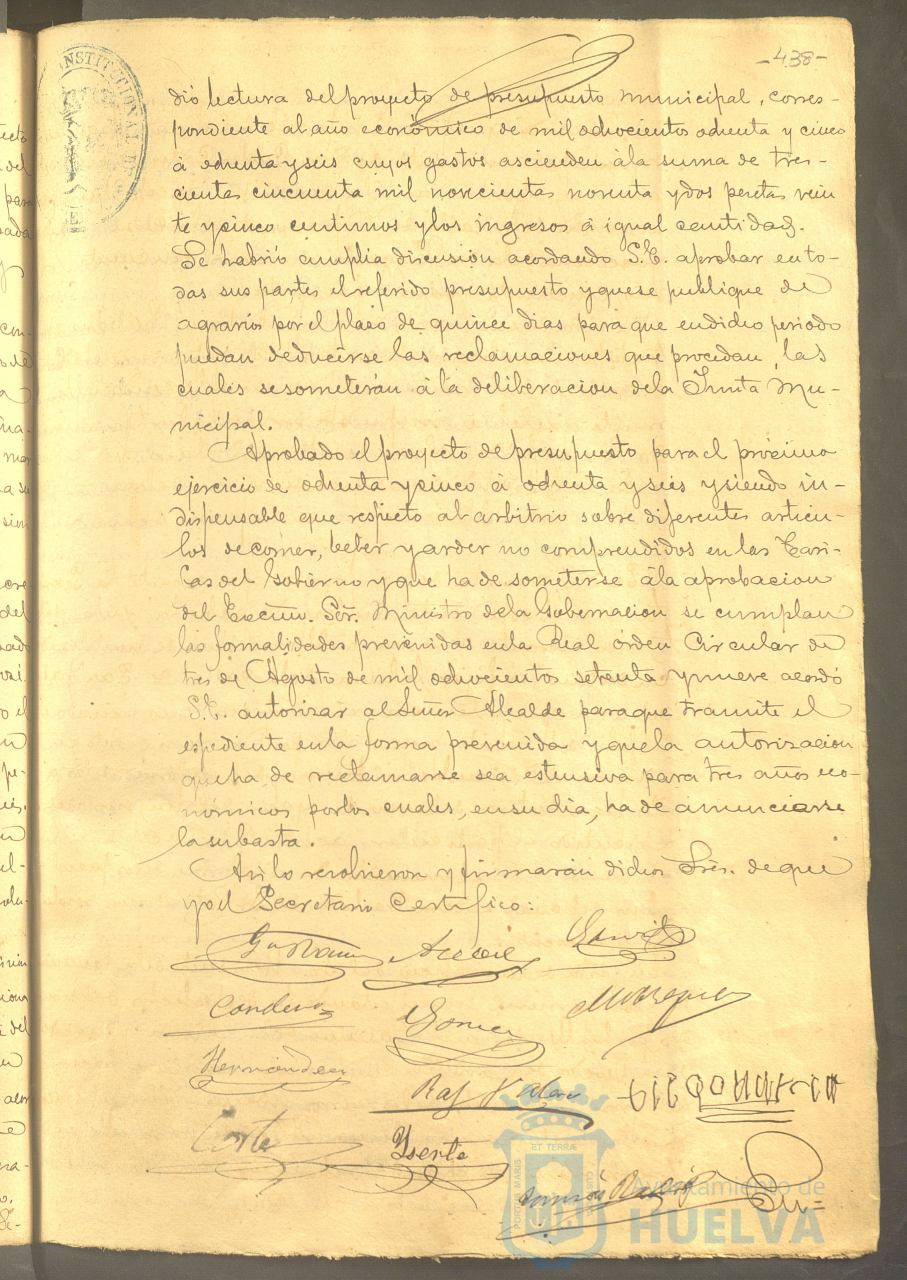 -438-
NSTITUCIONAL DE
dió lectura del proyecto de presupuesto municipal, corres-
pondiente al año económico de mil ochocientos ochenta y cinco
á ochenta y seis cuyos gastos ascienden á la suma de tres-
cientas cincuenta mil novecientas noventa y dos pesetas vein
te y cinco centimos y los ingresos á igual cantidad.
Se habrió amplia discusion acordando S.E. aprobar en to-
das sus partes el referido presupuesto y que se publique de
agravios por el plaso de quince dias para que en dicho periodo
puedan deducirse las reclamaciones que procedan, las
cuales se someterán á la deliberacion de la Junta Mu-
nicipal.
Aprobado el proyecto de presupuesto para el próximo
ejercicio de ochenta y cinco á ochenta y seis y siendo in-
dispensable que respecto al arbitrio sobre diferentes articu-
los de comer, beber y arder no comprendidos en las Tari-
fas del Gobierno y que ha de someterse á la aprobacion
del Excmo. Señ. Ministro de la Gobernacion se cumplan
las formalidades prevenidas en la Real órden Circular de
tres de Agosto de mil ochocientos setenta y nueve acordó
S.E. autorizar al Señor Alcalde para que tramite el
espediente en la forma prevenida y que la autorizacion
que ha de reclamarse sea estensiva para tres años eco-
nómicos por los cuales, en su dia, ha de anunciarse
la subasta.
Asi lo resolvieron y firmarán dichos Sres. de que
yo el Secretario Certifico:
Garcia
Gomez
Hernandez
Raf
Corte
Yserte
PORTUS MARIS ET TERRÆ CUSTODIA
Ayuntamiento de
HUELVA